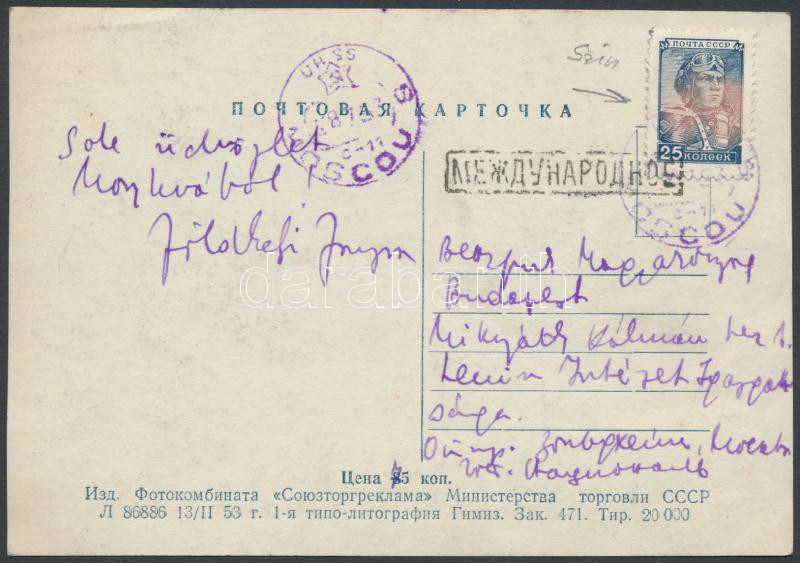 Szín
ПОЧТА СССР
25 КОПЕЕК
URSS
MOSCOU
ПОЧТОВАЯ КАРТОЧКА
Sok üdvözlet
Moszkvából!
МЕЖДУНАРОДНОЕ
MOSCOU
darabanth
Венгрия Magyarország
Budapest
Mikszáth Kálmán tér 1.
Lenin Intézet Igazgató
sága.
Отпр. Москва
гост. Националь
Цена 5 коп.
Изд. Фотокомбината «Союзторгреклама» Министерства торговли СССР
Л 86886 13/II 53 г. 1-я типо-литография Гимиз. Зак. 471. Тир. 20 000